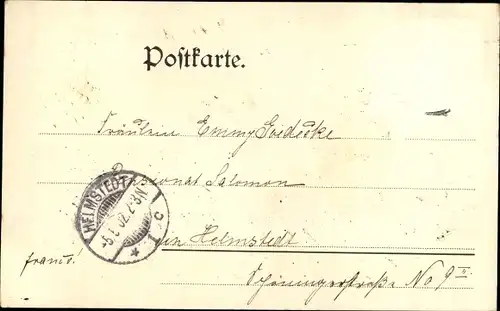 Postkarte.
Fräulein Emmy Goedecke
Pensionat Salomon
in Helmstedt
Schöningerstraße No 9 II
franco!
HELMSTEDT
-5.1.02. 2-3N
* C